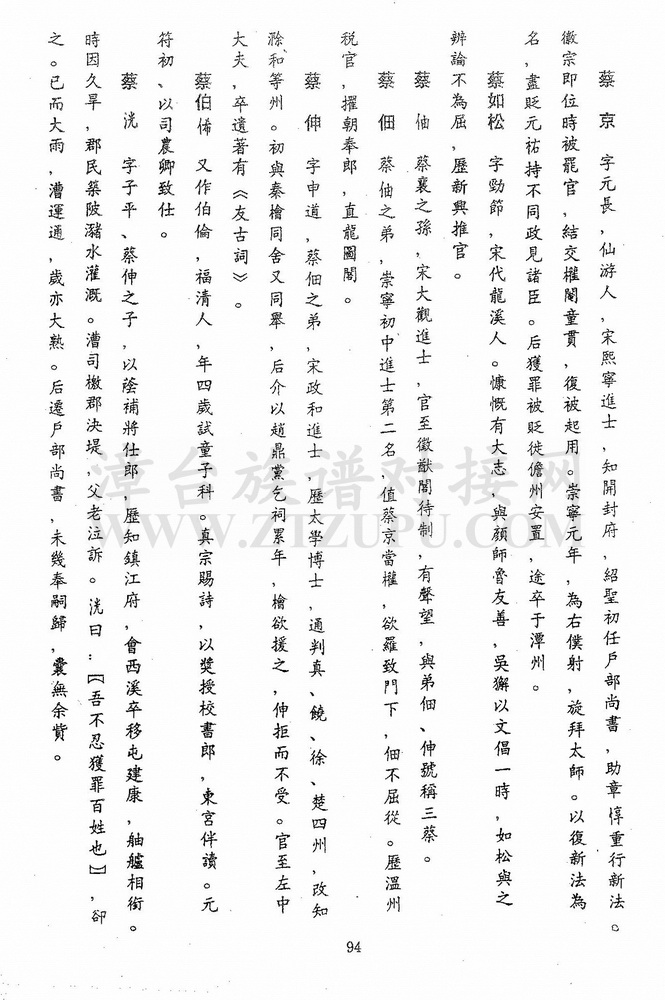 蔡京 字元長，仙游人，宋熙寧進士，知開封府，紹聖初任戶部尚書，助章惇重行新法。
徽宗即位時被罷官，結交權閹童貫，復被起用。崇寧元年，為右僕射，旋拜太師。以復新法為
名，盡貶元祐持不同政見諸臣。后獲罪被貶徙儋州安置，途卒于潭州。
蔡如松 字勁節，宋代龍溪人。慷慨有大志，與顏師魯友善，吳獬以文倡一時，如松與之
辨論不為屈，歷新興推官。
蔡 伷 蔡襄之孫，宋大觀進士，官至徽猷閣待制，有聲望，與弟佃、伸號稱三蔡。
蔡 佃 蔡伷之弟，崇寧初中進士第二名，值蔡京當權，欲羅致門下，佃不屈從。歷溫州
税官，擢朝奉郎，直龍圖閣。
蔡 伸 字申道，蔡佃之弟，宋政和進士，歷太學博士，通判真、饒、徐、楚四州，改知
滁和等州。初與秦檜同舍又同舉，后介以趙鼎黨乞祠累年，檜欲援之，伸拒而不受。官至左中
大夫，卒遺著有《友古詞》。
蔡伯俙 又作伯倫，福清人，年四歲試童子科。真宗賜詩，以獎授校書郎，東宮伴讀。元
符初、以司農卿致仕。
蔡 洸 字子平、蔡伸之子，以蔭補將仕郎，歷知鎮江府，會西溪卒移屯建康，舳艫相銜。
時因久旱，郡民築陂瀦水灌溉。漕司檄郡決堤，父老泣訴。洸曰：【吾不忍獲罪百姓也】，卻
之。已而大雨，漕運通，歲亦大熟。后遷戶部尚書，未幾奉嗣歸，囊無余貲。
94
潭台族谱对接网
WWW.ZTZUPU.COM